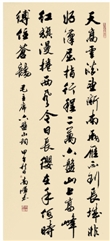 天高云淡望断南飞雁不到长城非
好汉屈指行程二万六盘山上高峰
红旗漫卷西风今日长缨在手何时
缚住苍龙
毛主席六盘山词